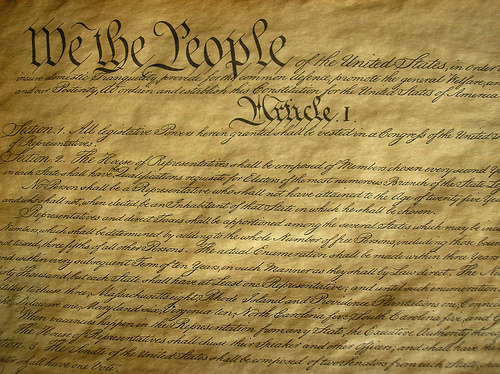 We the People of the United States, in Order
insure domestic Tranquility, provide for the common defence, promote the general Welfare, and
and our Posterity, do ordain and establish this Constitution for the United States of America
Article. I.
Section. 1. All legislative Powers herein granted shall be vested in a Congress of the United
of Representatives.
Section. 2. The House of Representatives shall be composed of Members chosen every second Year
in each State shall have Qualifications requisite for Electors of the most numerous Branch of the State
No Person shall be a Representative who shall not have attained to the Age of twenty five Years
and who shall not, when elected, be an Inhabitant of that State in which he shall be chosen.
Representatives and direct Taxes shall be apportioned among the several States which may be
Numbers, which shall be determined by adding to the whole Number of free Persons, including those
not taxed, three fifths of all other Persons. The actual Enumeration shall be made within three Years
and within every subsequent Term of ten Years, in such Manner as they shall by Law direct. The
thirty Thousand, but each State shall have at Least one Representative; and until such enumeration
entitled to chuse three, Massachusetts eight, Rhode Island and Providence Plantations one,
eight, Delaware one, Maryland six, Virginia ten, North Carolina five, South Carolina five, and
When vacancies happen in the Representation from any State, the Executive Authority
The House of Representatives shall chuse their Speaker and other Officers; and shall have
Section. 3. The Senate of the United States shall be composed of two Senators from each State,
shall have one Vote.